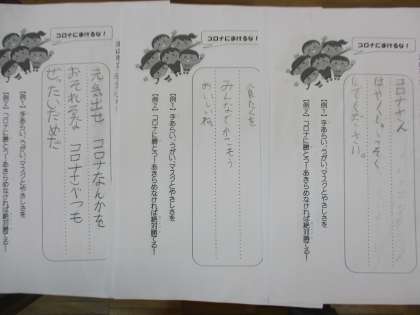 コロナにまけるな！
元気出せ　コロナなんかを
おそれるな　コロナさべつも
ぜったいだめだ
【例１】手あらい、うがい、マスクとやさしさを
【例２】「コロナに勝とう！」あきらめなければ絶対勝てる！
コロナにまけるな！
みんなでかこもう
おいしいね
【例１】手あらい、うがい、マスクとやさしさを
【例２】「コロナに勝とう！」あきらめなければ絶対勝てる！
コロナにまけるな！
コロナさん
はやくしゅうそく
してください。
【例１】手あらい、うがい、マスクとやさしさを
【例２】「コロナに勝とう！」あきらめなければ絶対勝てる！